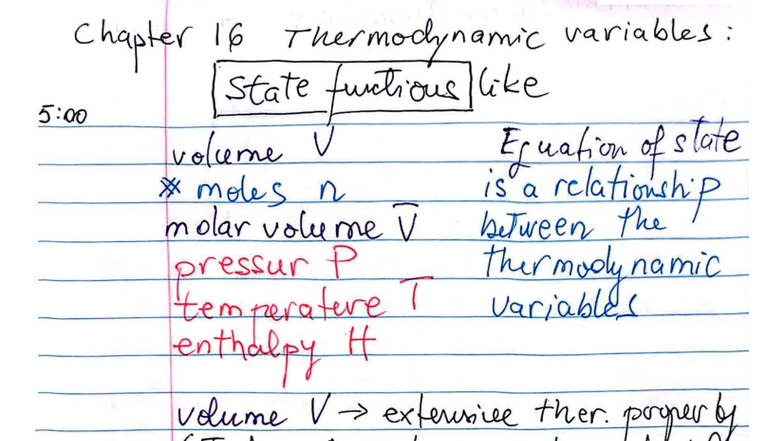 Chapter 16 Thermodynamic variables:
State functions like
5:00
volume V
* moles n
molar volume V̅
pressur P
temperature T
enthalpy H
Equation of state
is a relationship
between the
thermodynamic
variables
volume V → extensive ther. property